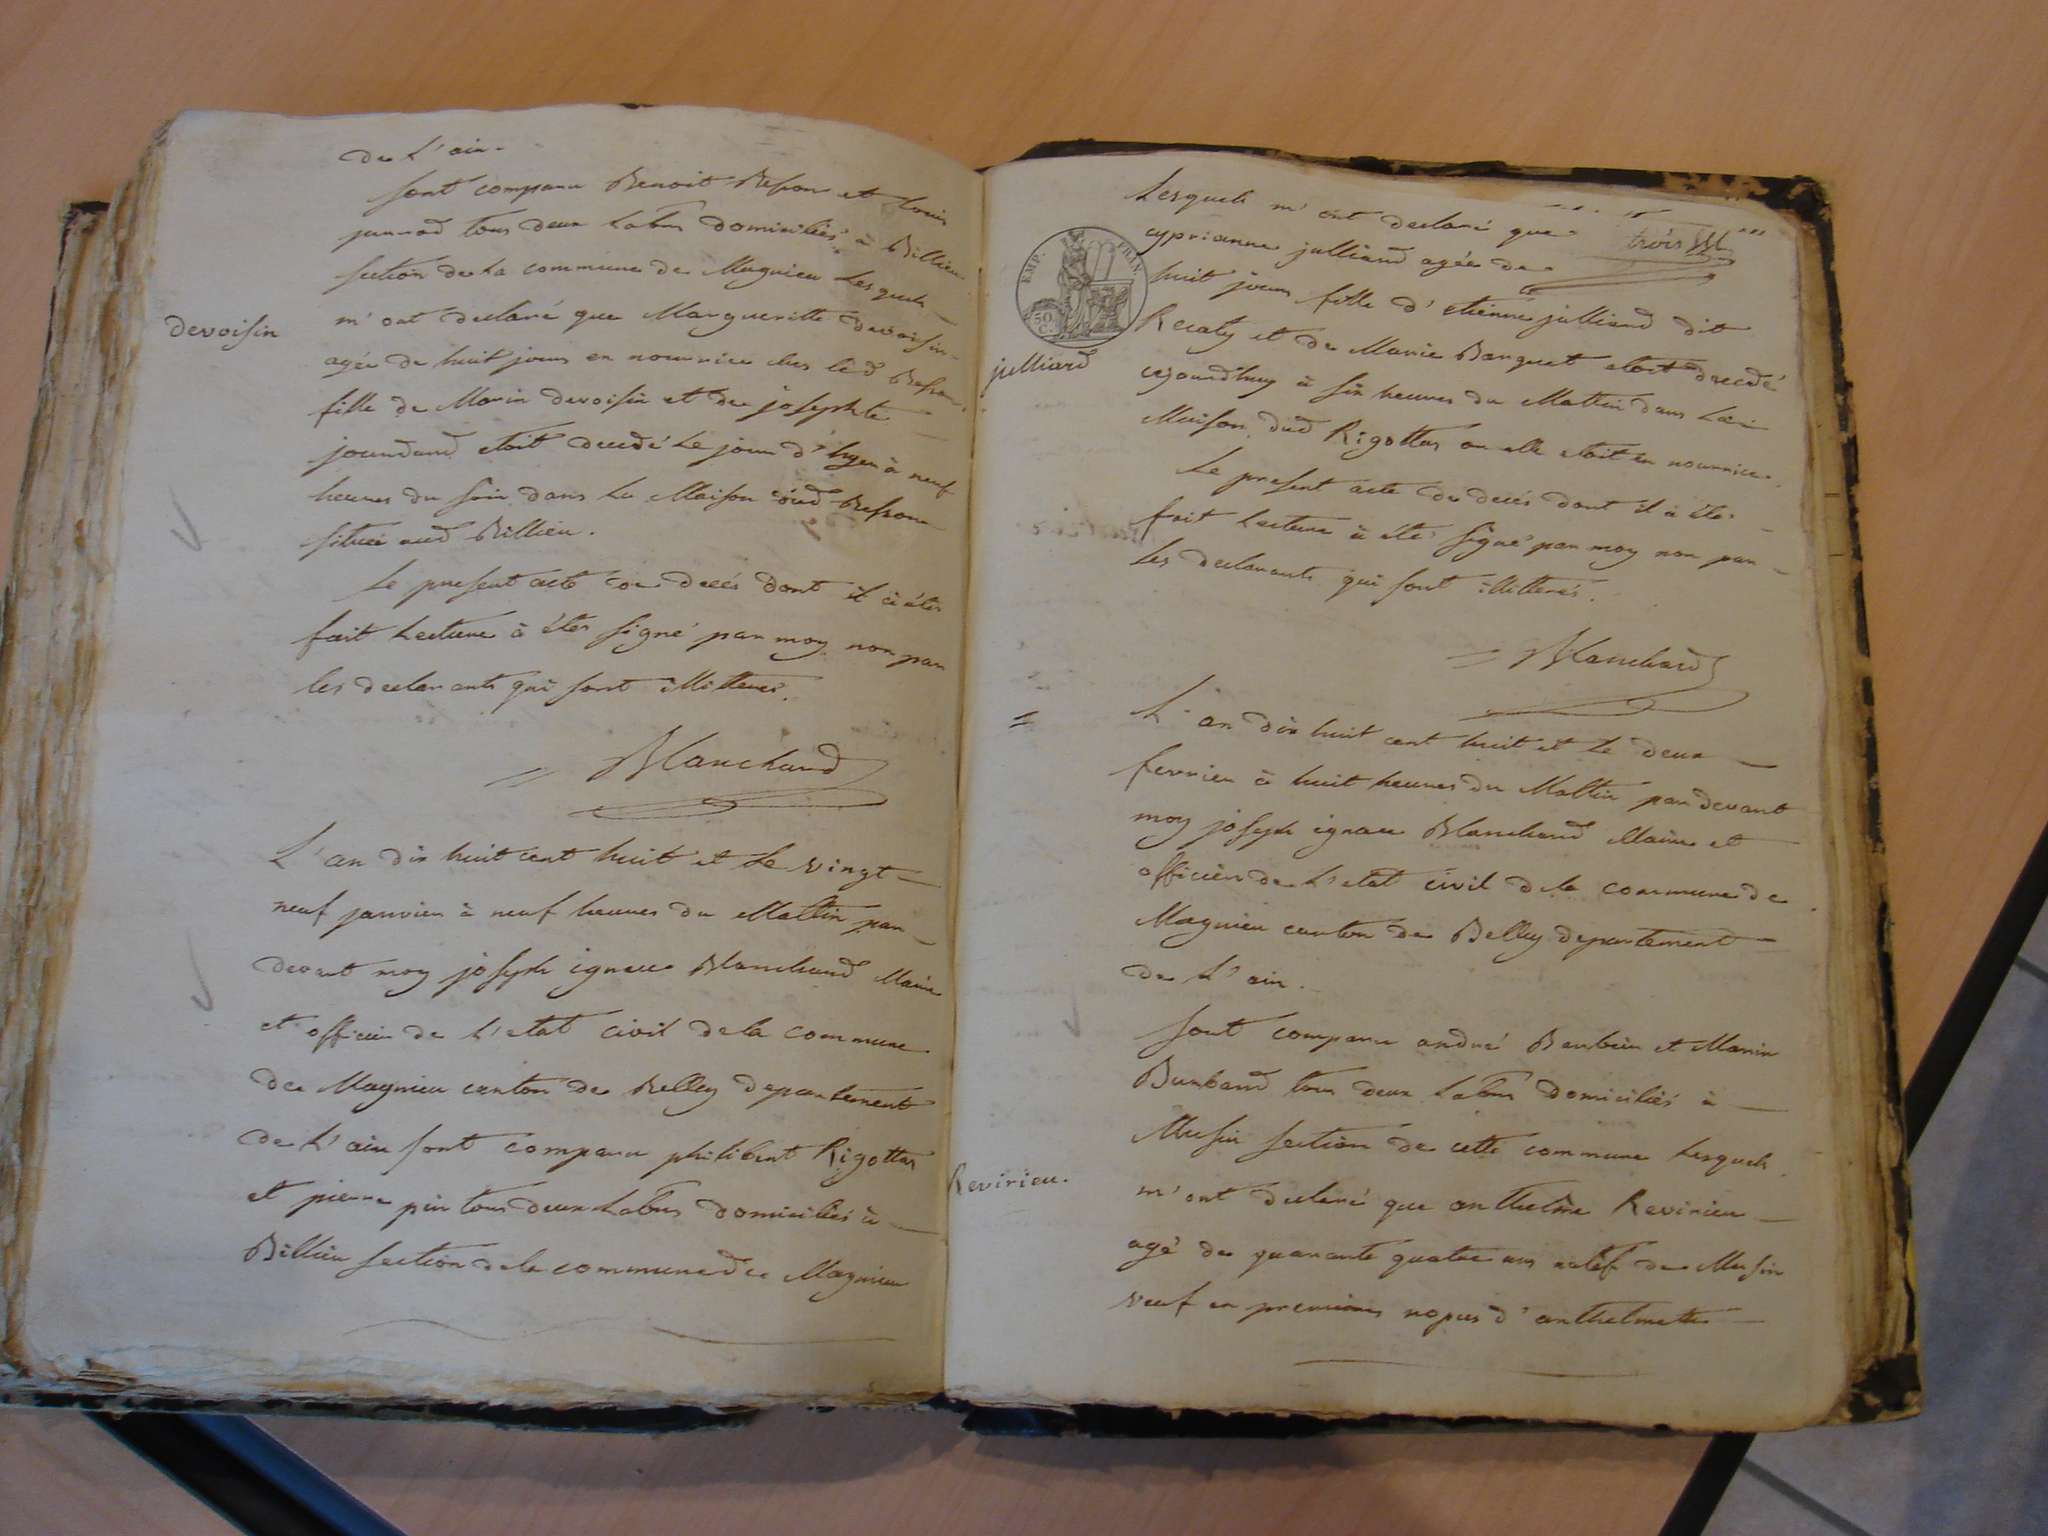 de L'ain.
sont comparu Benoit Besson et Louis
junod tous deux Labrs domiciliés à Billieu
section de La commune de Magnieu Lesquels
m'ont declaré que Margueritte devoisin
devoisin
agée de huit jours en nourrice ches led Besson
fille de Marin devoisin et de josephte
jourdand etoit decedé Le jour d'hyer à neuf
heures du soir dans La Maison dud Besson
située aud Billieu.
Le present acte de decés dont il à étés
fait Lecture à étés signé par moy non par
les declarants qui sont illitterés.
Blanchard
L'an dix huit cent huit et Le vingt
neuf janvier à neuf heures du Mattin par
devant moy joseph ignace Blanchard Maire
et officier de L'etat civil de la commune
de Magnieu canton de Belley departement
de L'ain sont comparu philibert Rigottas
et pierre pin tous deux Labrs domiciliés à
Billieu section de la commune de Magnieu
Lesquels m'ont declaré que
trois
cyprianne julliand agée de
EMP. FRAN.
50 C.
huit jours fille d'etienne julliand dit
Recaty et de Marie Barquet etoit decedé
julliard
cejourd'huy à six heures du Mattin dans La
Maison dud Rigottas ou elle etoit en nourrice.
Le present acte de decés dont il à étés
fait Lecture à étés signé par moy non par
Les declarants qui sont illitterés.
Blanchard
L'an dix huit cent huit et Le deux
fevrier à huit heures du Mattin par devant
moy joseph ignace Blanchard Maire et
officier de L'etat civil de la commune de
Magnieu canton de Belley departement
de L'ain.
sont comparu andré Berbein et Marin
Burband tous deux Labrs domiciliés à
Musin section de cette commune Lesquels
Revirieu.
m'ont declaré que anthelme Revirieu
agé de quarante quatre ans natif de Musin
veuf en premieres nopces d'anthelmette